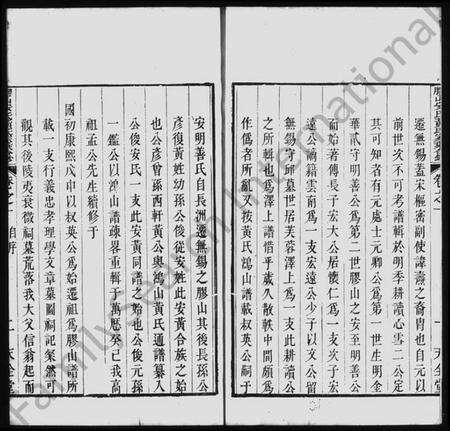 遷無錫蓋宋樞密副使諱燾之裔冑也自元以
前世次不可考譜輯於明季耕讀心雪二公定
其可知者有元處士元卿公爲第一世生明金
華貳守明善公爲第二世膠山之安至明善公
而始著傅長子宏大公居懷仁爲一支次子宏
遠公謫籍雲南爲一支宏遠公少子以文公留
無錫守邱墓世居芙蓉澤上爲一支此耕讀公
之所輯也爲澤上譜惜乎歲久散軼中間頗爲
作僞者所亂又按黃氏鴻山譜載权英公嗣于
安明善氏自長洲遷無錫之膠山其後長孫公
彥復黃姓幼孫公俊從安姓此安黃合族之始
也公彥曾孫西軒黃公與鴻山黃氏通譜纂入
公俊安氏一支此安黃同譜之始也公俊元孫
一鑑公以鴻山譜疎畧重輯于萬厯癸巳我高
祖孟公先生續修于
國初康熙戊申以权英公爲始遷祖爲膠山譜所
載一支行義忠孝理學文章墓圖祠記粲然可
觀其後陵夷衰微祠墓荒落我大父信翁起而
卷之一
自序
二
天全堂
卷之一
一
天全堂
FamilySearch International